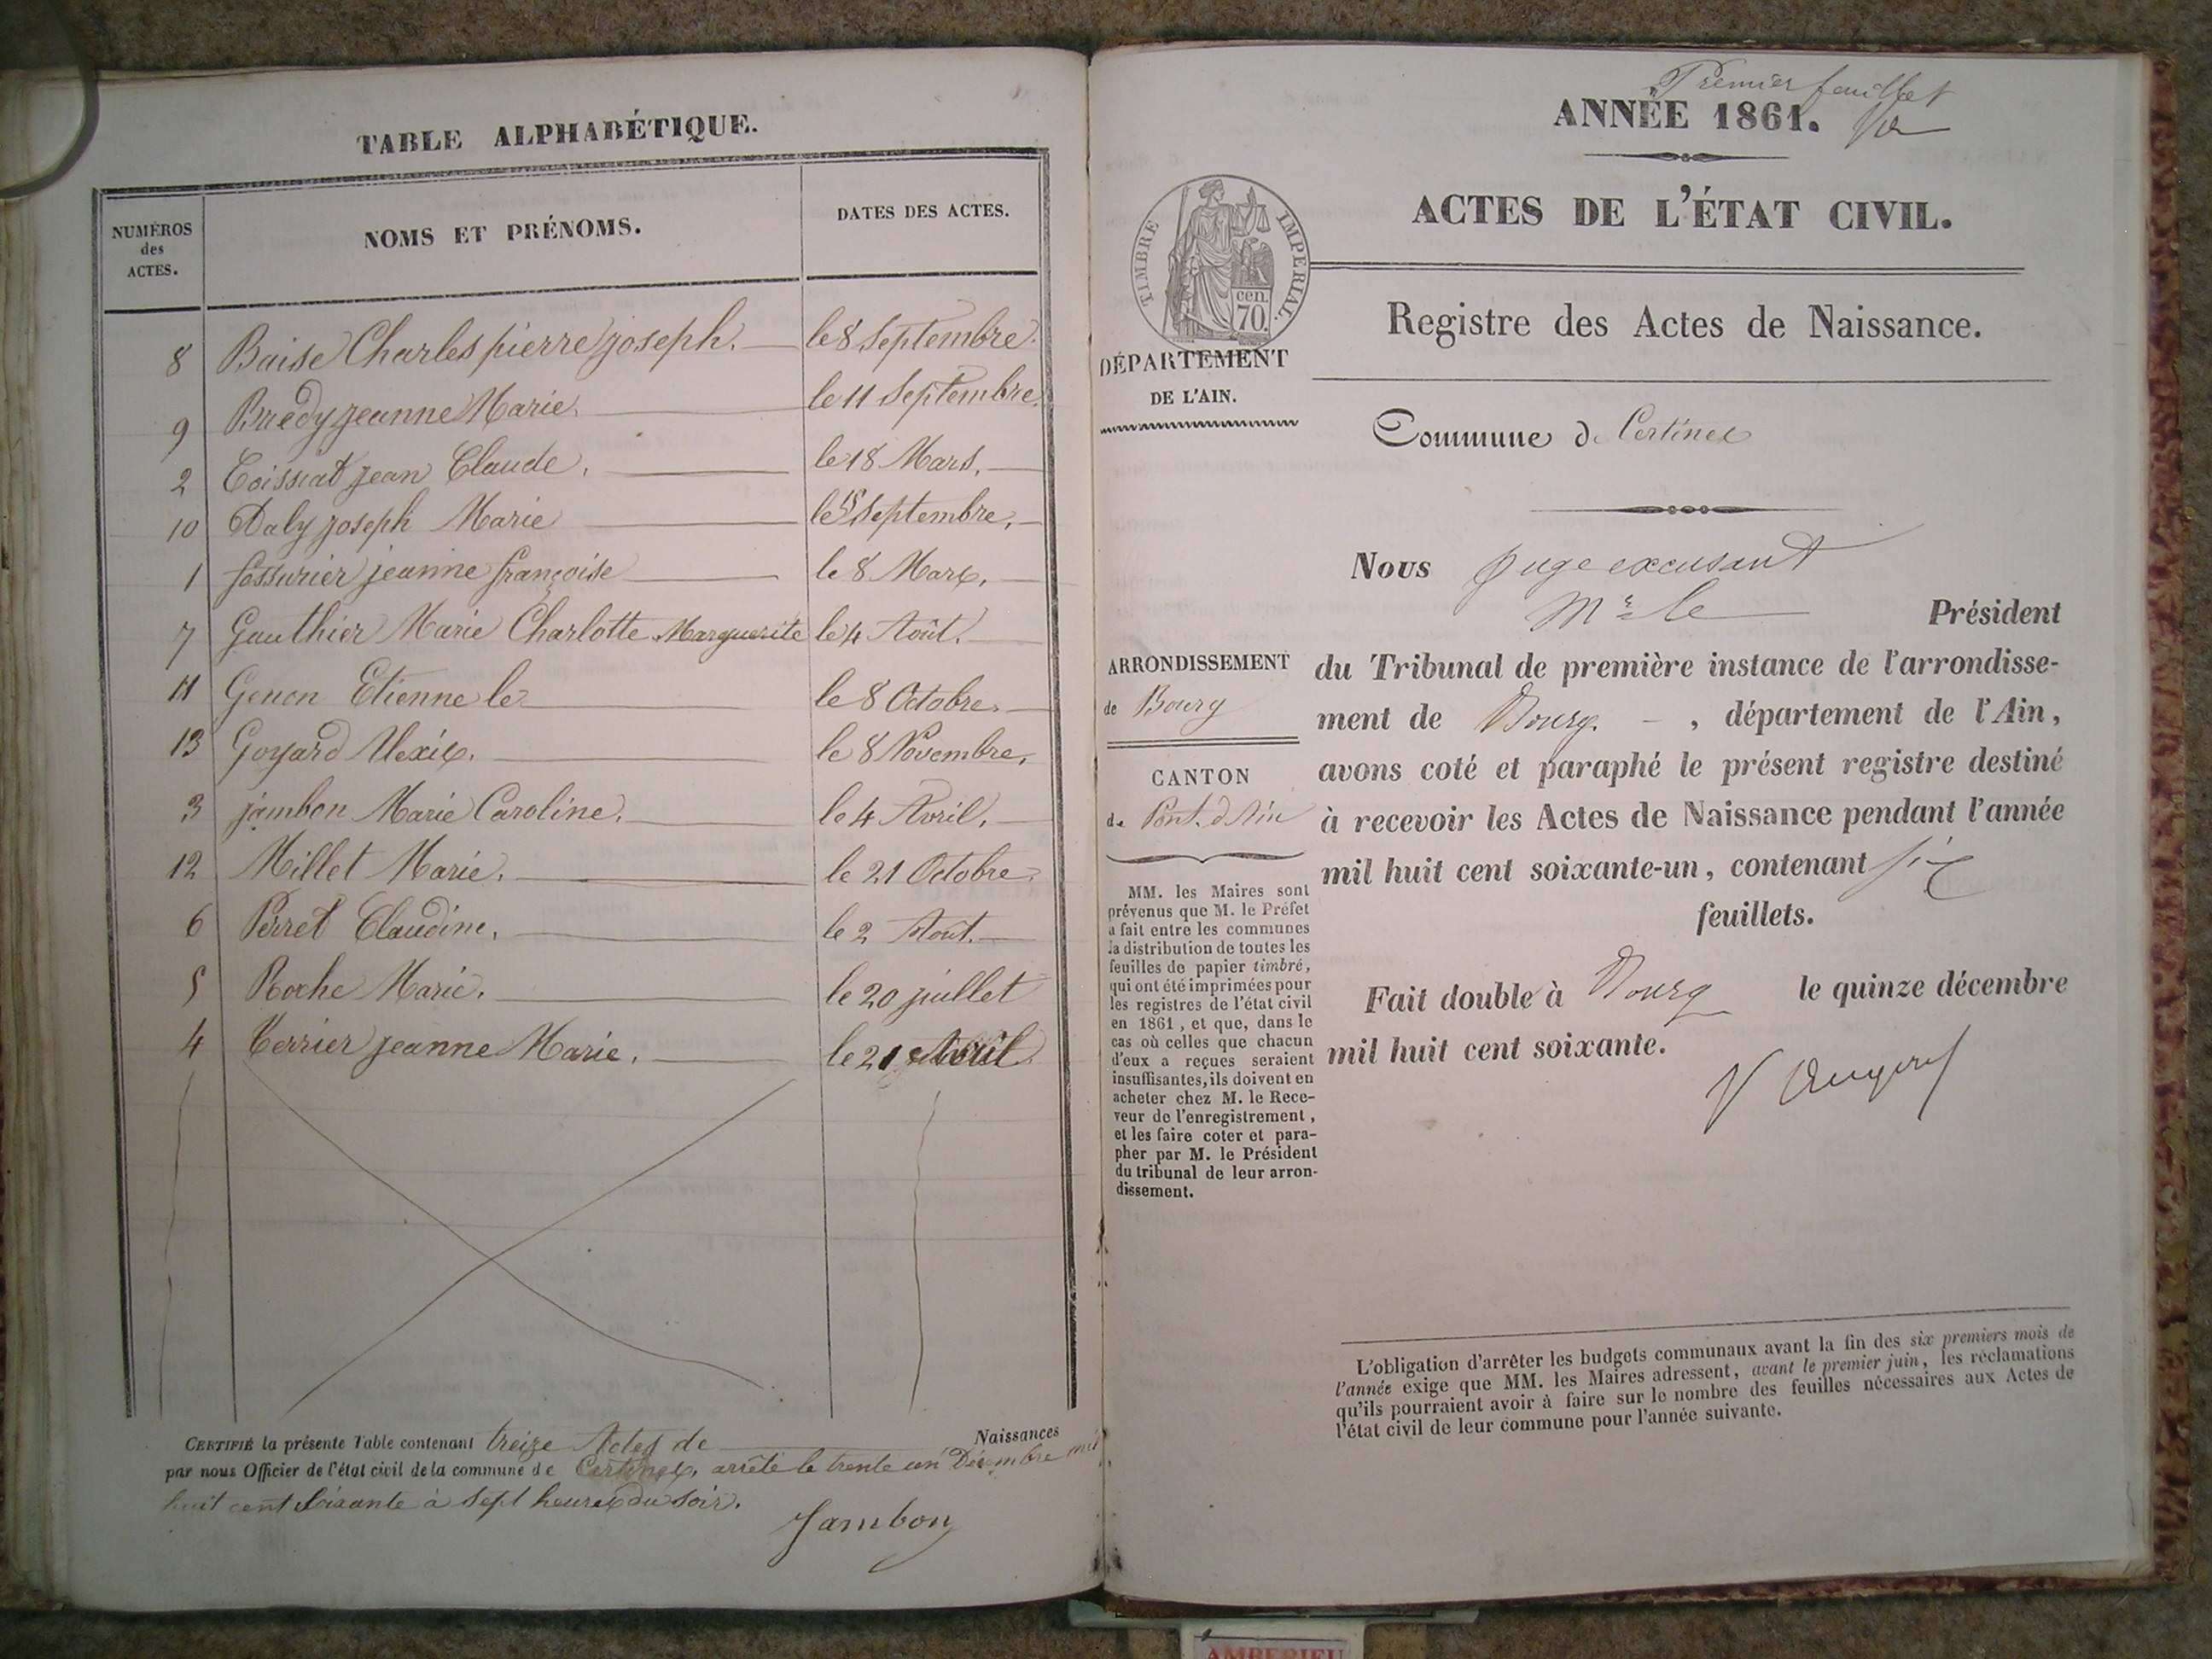 TABLE ALPHABÉTIQUE.
NUMÉROS des ACTES.
NOMS ET PRÉNOMS.
DATES DES ACTES.
8 Baise Charles pierre joseph. le 8 Septembre.
9 Bredy jeanne Marie. le 11 Septembre.
2 Coissiat jean Claude. le 18 Mars.
10 Daly joseph Marie le 15 Septembre.
1 fossurier jeanne françoise le 8 Mars.
7 Gauthier Marie Charlotte Marguerite le 4 Août.
11 Genon Etienne le 8 Octobre.
13 Goyard Alexis. le 8 Novembre.
3 jambon Marie Caroline. le 4 Avril.
12 Millet Marie. le 21 Octobre.
6 Perret Claudine. le 2 Août.
5 Roche Marie. le 20 juillet
4 Terrier jeanne Marie. le 21 Avril
CERTIFIÉ la présente Table contenant treize Actes de Naissances
par nous Officier de l'état civil de la commune de Certines, arrêté le trente un Décembre mil
huit cent Soixante à Sept heures du Soir.
Jambon
Premier feuillet
ANNÉE 1861.
ACTES DE L'ÉTAT CIVIL.
TIMBRE IMPERIAL.
cen.
70.
Registre des Actes de Naissance.
DÉPARTEMENT
DE L'AIN.
Commune de Certines
Nous Juge excusant
Mr le Président
ARRONDISSEMENT
de Bourg
CANTON
de Pont d'Ain
du Tribunal de première instance de l'arrondisse-
ment de Bourg - , département de l'Ain,
avons coté et paraphé le présent registre destiné
à recevoir les Actes de Naissance pendant l'année
mil huit cent soixante-un, contenant six
feuillets.
Fait double à Bourg le quinze décembre
mil huit cent soixante.
MM. les Maires sont
prévenus que M. le Préfet
a fait entre les communes
la distribution de toutes les
feuilles de papier timbré,
qui ont été imprimées pour
les registres de l'état civil
en 1861, et que, dans le
cas où celles que chacun
d'eux a reçues seraient
insuffisantes, ils doivent en
acheter chez M. le Rece-
veur de l'enregistrement,
et les faire coter et para-
pher par M. le Président
du tribunal de leur arron-
dissement.
L'obligation d'arrêter les budgets communaux avant la fin des six premiers mois de
l'année exige que MM. les Maires adressent, avant le premier juin, les réclamations
qu'ils pourraient avoir à faire sur le nombre des feuilles nécessaires aux Actes de
l'état civil de leur commune pour l'année suivante.
AMBERIEU